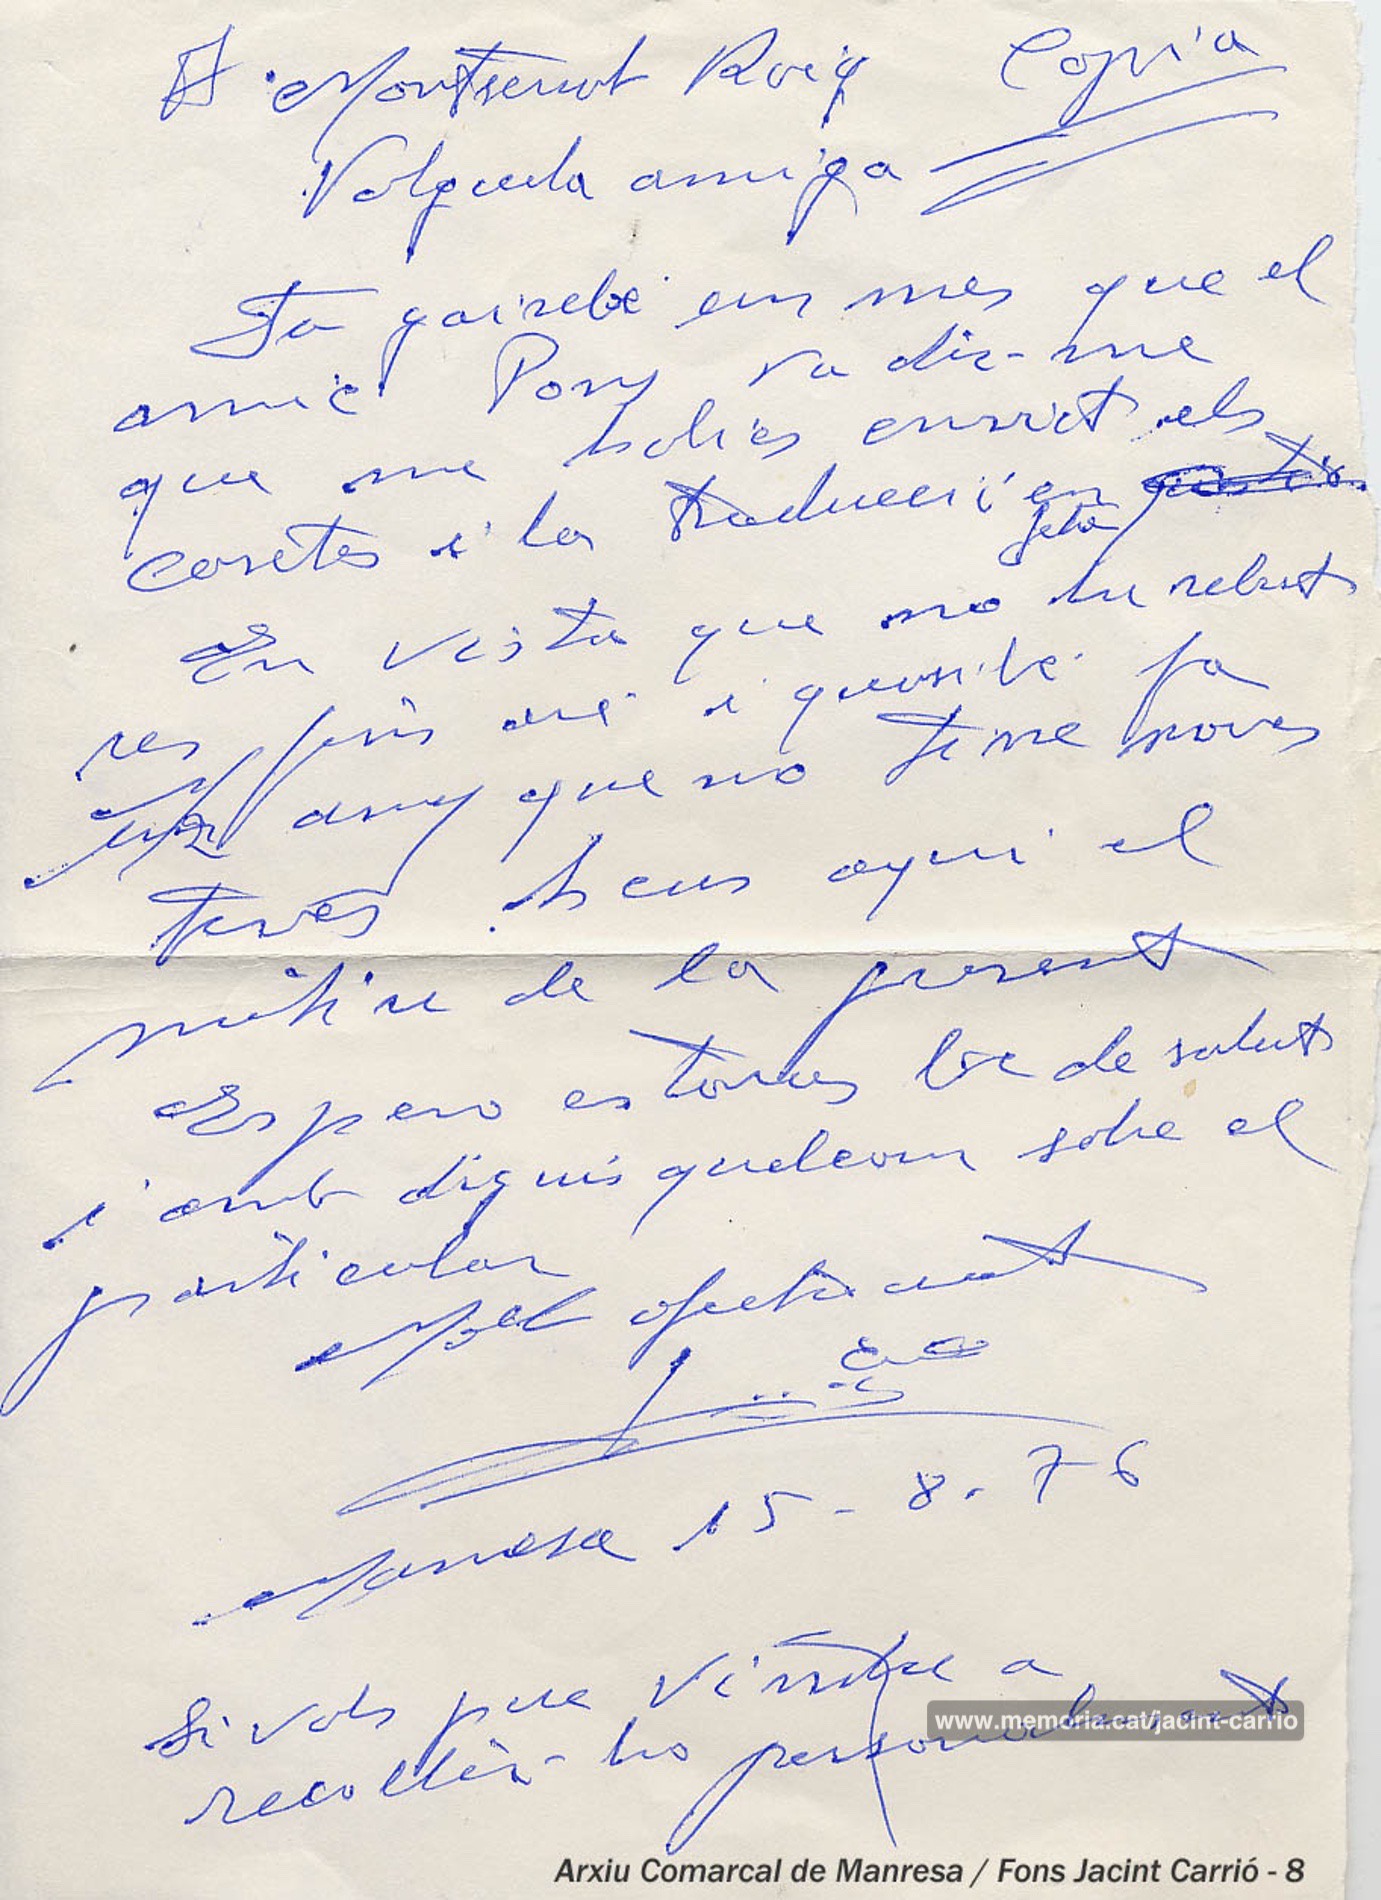 A Montserrat Roig Copia
Volguda amiga
Fa gairebe un mes que el
amic Pons va dir-me
que me habies enviat els
casetes i la traducció en
feta
En vista que no he rebut
res fins are i quasibé fa
1/2 any que no tinc noves
teves. heus aqui el
motiu de la present
Espero estaras be de salut
i amb diguis quelcom sobre el
particular
Molt afectument
Manresa 15-8-76
Si vols puc vindre a
recollir-ho personalment
www.memoria.cat/jacint-carrio
Arxiu Comarcal de Manresa / Fons Jacint Carrió - 8